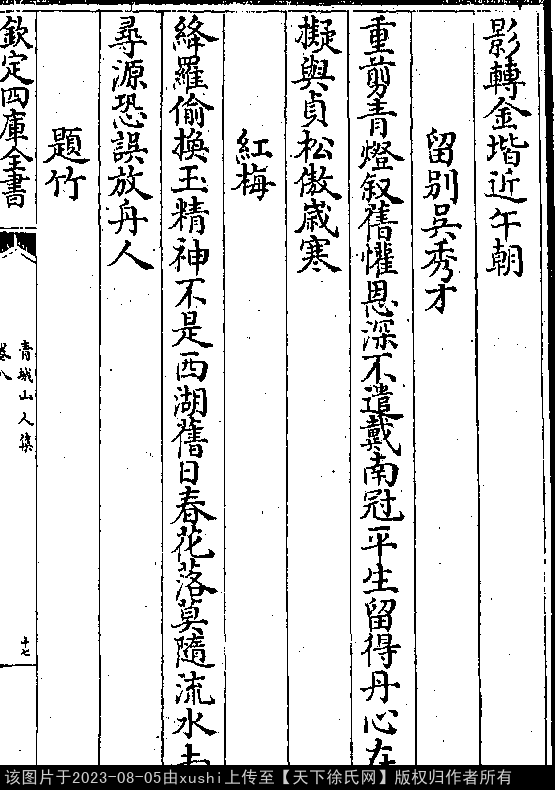 影轉金堦近午朝
留别吳秀才
重剪青燈叙舊懽恩深不遣戴南冠平生留得丹心在
擬與貞松傲歲寒
紅梅
絳羅偷換玉精神不是西湖舊日春花落莫隨流水去
尋源恐誤放舟人
題竹
欽定四庫全書
青城山人集
卷八
十七
该图片于2023-08-05由xushi上传至【天下徐氏网】版权归作者所有